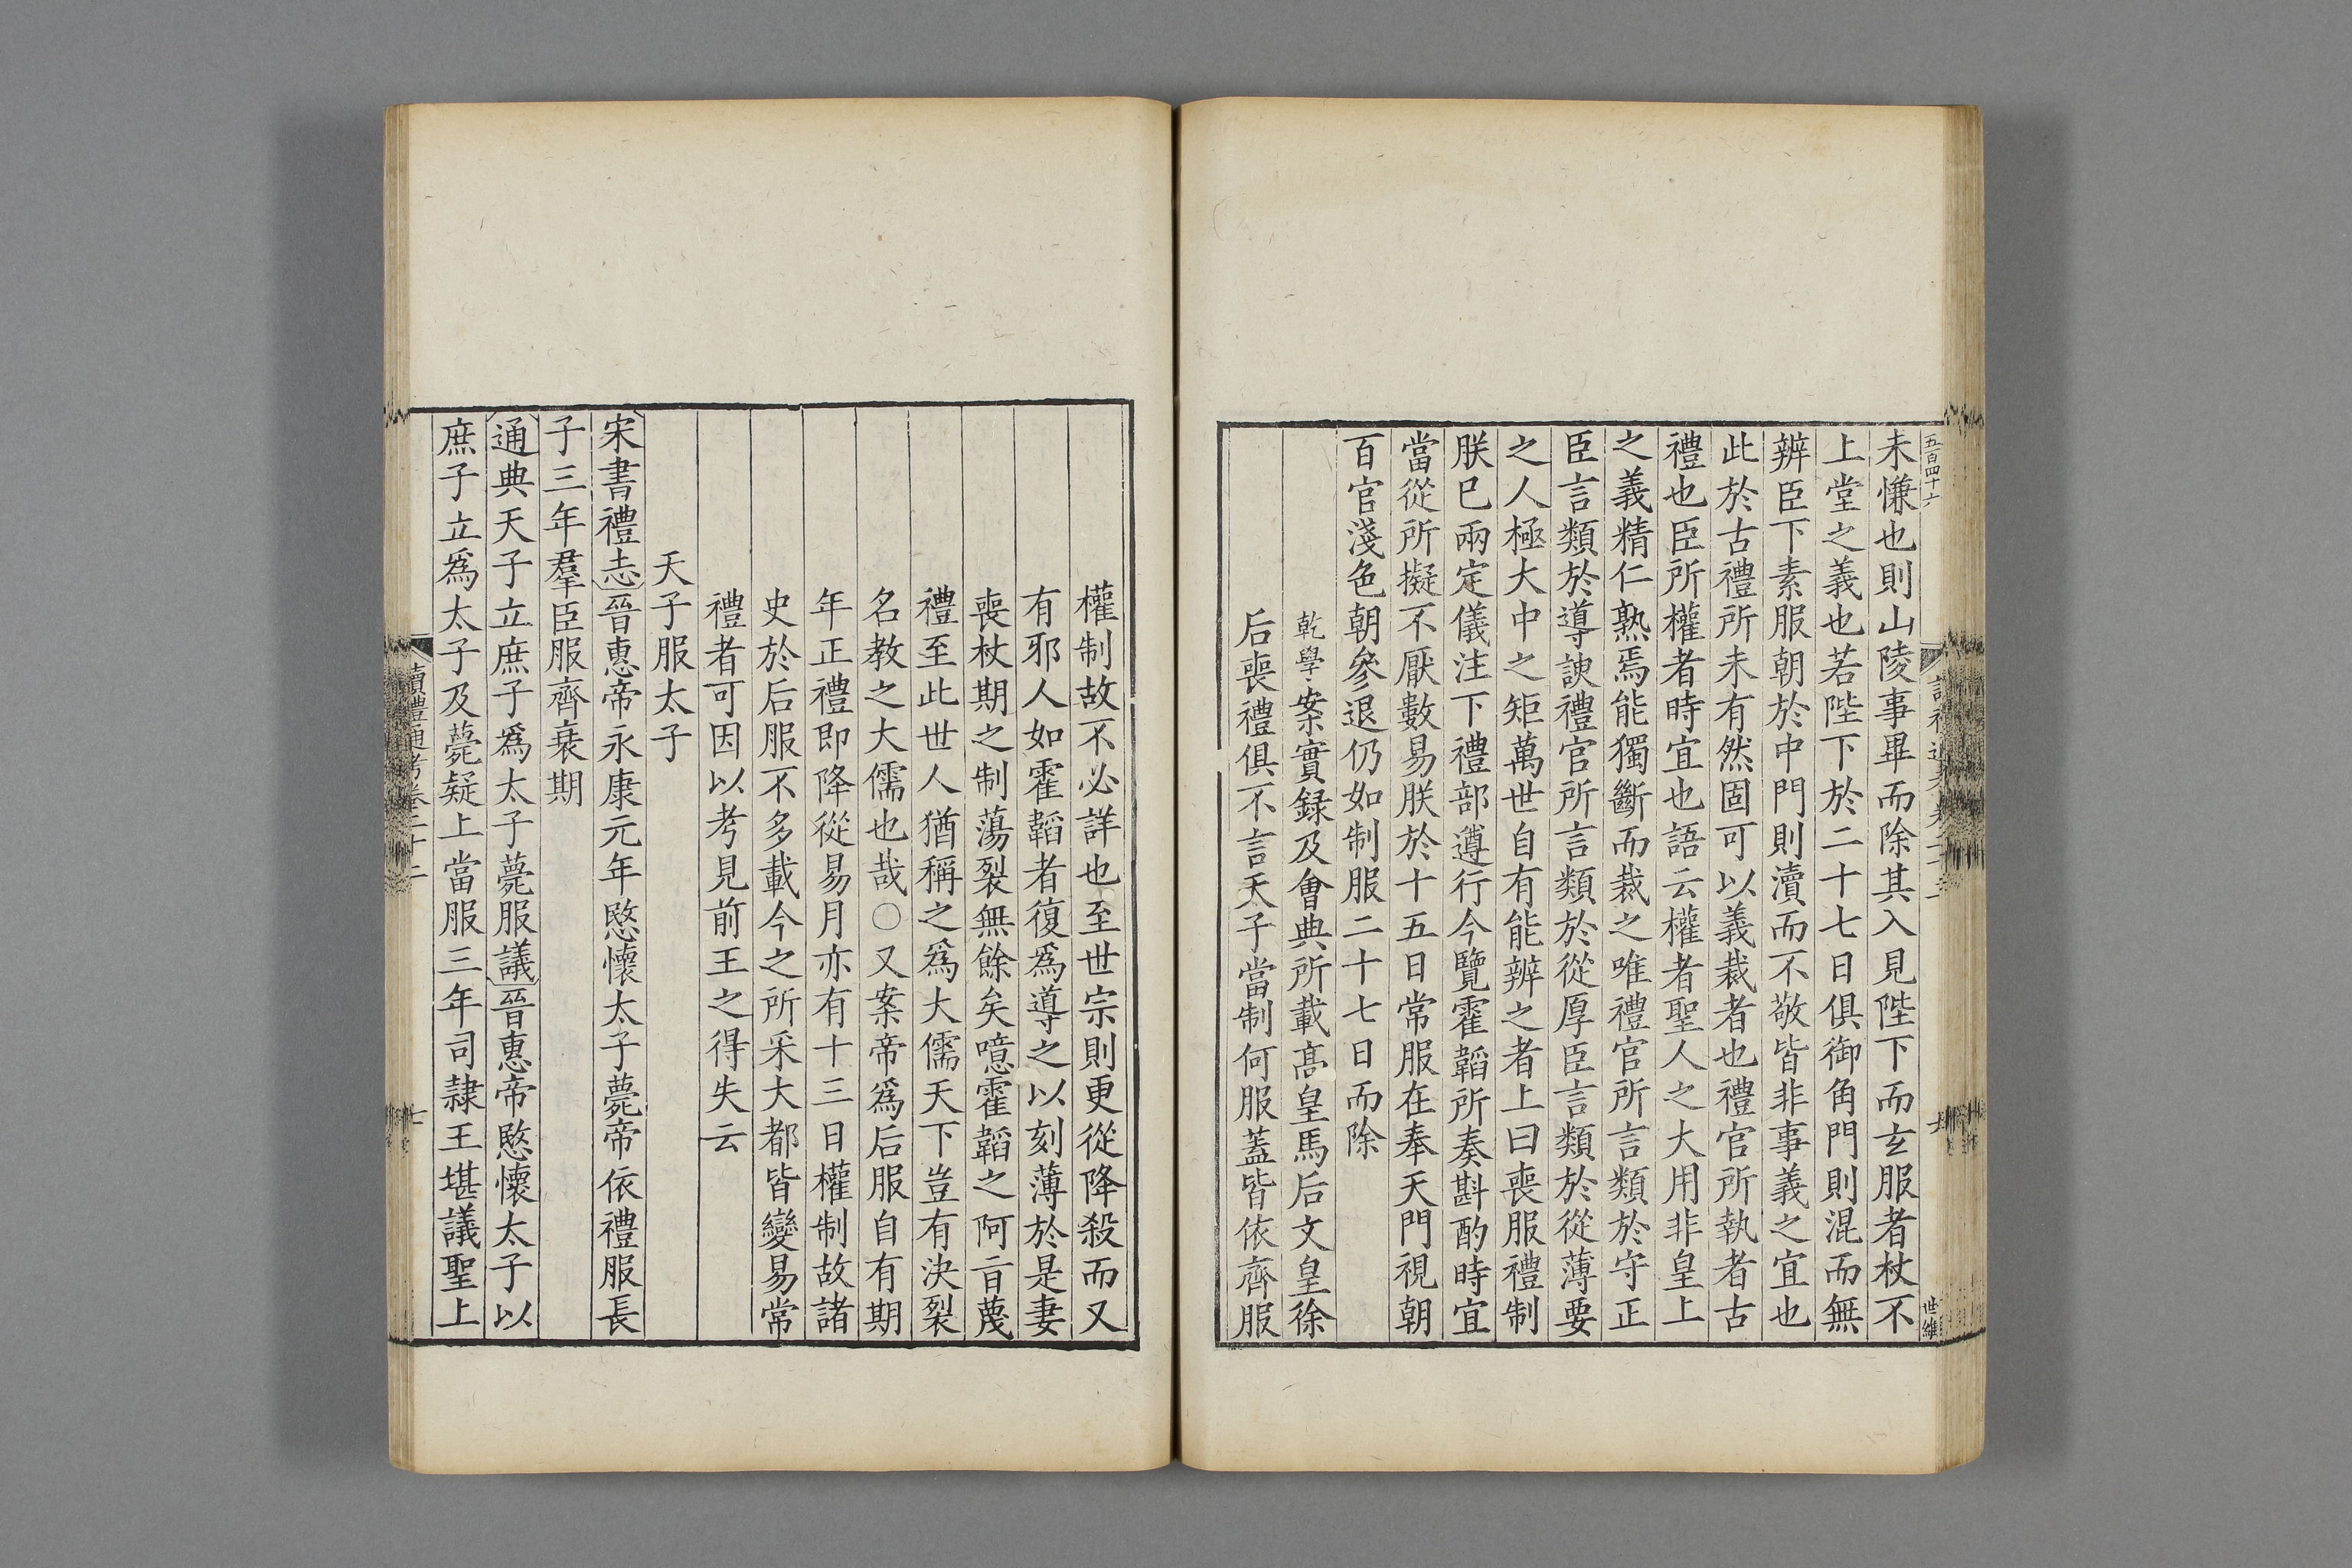 五百四十六
世維
未慊也則山陵事畢而除其入見陛下而玄服者杖不
上堂之義也若陛下於二十七日俱御角門則混而無
辨臣下素服朝於中門則瀆而不敬皆非事義之宜也
此於古禮所未有然固可以義裁者也禮官所執者古
禮也臣所權者時宜也語云權者聖人之大用非皇上
之義精仁熟焉能獨斷而裁之唯禮官所言類於守正
臣言類於導諛禮官所言類於從厚臣言類於從薄要
之人極大中之矩萬世自有能辨之者上曰喪服禮制
朕已兩定儀注下禮部遵行今覽霍韜所奏斟酌時宜
當從所擬不厭數易朕於十五日常服在奉天門視朝
百官淺色朝參退仍如制服二十七日而除
乾學案實録及會典所載高皇馬后文皇徐
后喪禮俱不言天子當制何服蓋皆依齊服
權制故不必詳也至世宗則更從降殺而又
有邪人如霍韜者復爲導之以刻薄於是妻
喪杖期之制蕩裂無餘矣噫霍韜之阿旨蔑
禮至此世人猶稱之爲大儒天下豈有決裂
名教之大儒也哉〇又案帝爲后服自有期
年正禮即降從易月亦有十三日權制故諸
史於后服不多載今之所采大都皆變易常
禮者可因以考見前王之得失云
天子服太子
宋書禮志晉惠帝永康元年愍懷太子薨帝依禮服長
子三年羣臣服齊衰期
通典天子立庶子爲太子薨服議晉惠帝愍懷太子以
庶子立爲太子及薨疑上當服三年司隸王堪議聖上
讀禮通考卷二十二